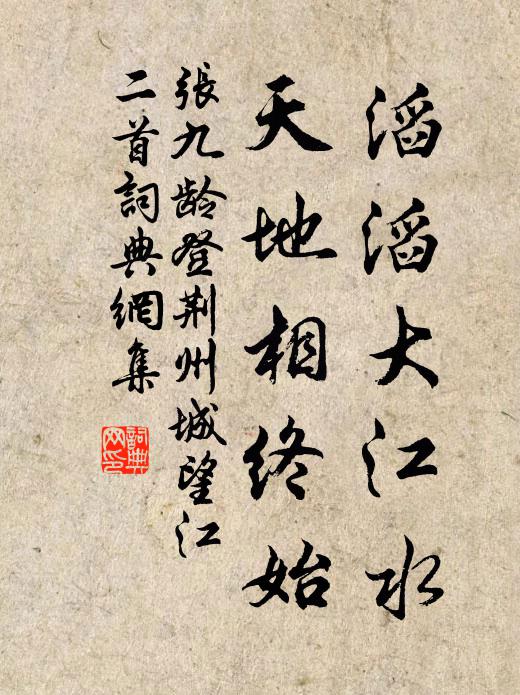 滔滔大江水
天地相终始
張九龄登荆州城望江
二首詞典網集
詞典
网印